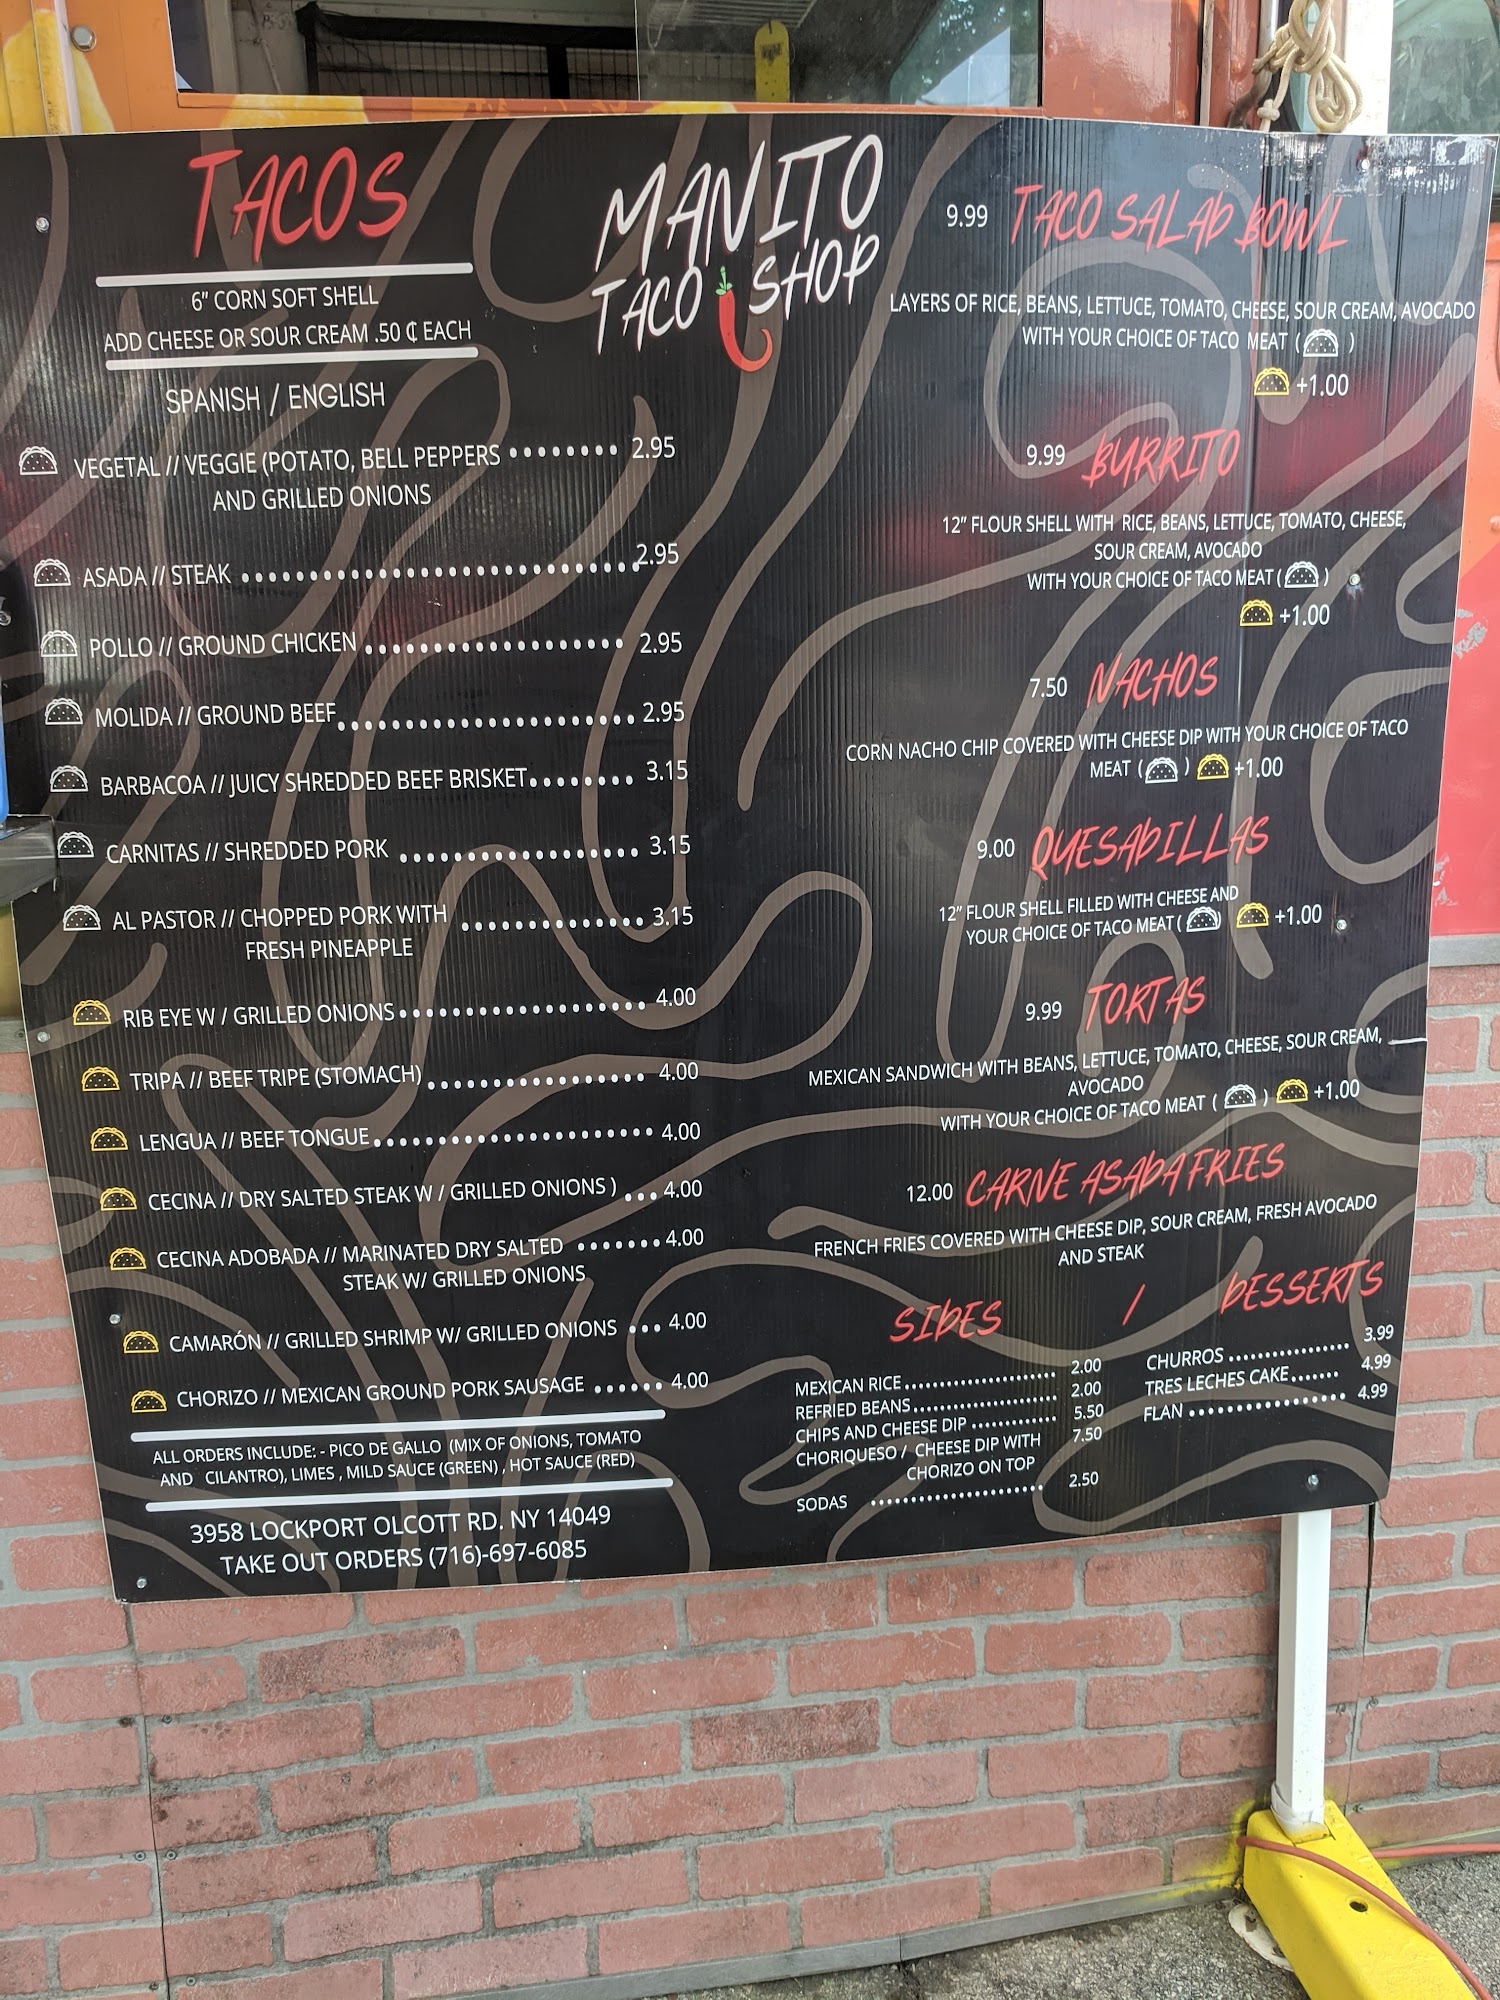 TACOS
6" CORN SOFT SHELL
ADD CHEESE OR SOUR CREAM .50 ₵ EACH
SPANISH / ENGLISH
VEGETAL // VEGGIE (POTATO, BELL PEPPERS ........ 2.95
AND GRILLED ONIONS
ASADA // STEAK ........ 2.95
POLLO // GROUND CHICKEN ........ 2.95
MOLIDA // GROUND BEEF ........ 2.95
BARBACOA // JUICY SHREDDED BEEF BRISKET ........ 3.15
CARNITAS // SHREDDED PORK ........ 3.15
AL PASTOR // CHOPPED PORK WITH ........ 3.15
FRESH PINEAPPLE
RIB EYE W / GRILLED ONIONS ........ 4.00
TRIPA // BEEF TRIPE (STOMACH) ........ 4.00
LENGUA // BEEF TONGUE ........ 4.00
CECINA // DRY SALTED STEAK W / GRILLED ONIONS ) ... 4.00
CECINA ADOBADA // MARINATED DRY SALTED ....... 4.00
STEAK W/ GRILLED ONIONS
CAMARÓN // GRILLED SHRIMP W/ GRILLED ONIONS ... 4.00
CHORIZO // MEXICAN GROUND PORK SAUSAGE ...... 4.00
ALL ORDERS INCLUDE: - PICO DE GALLO (MIX OF ONIONS, TOMATO
AND CILANTRO), LIMES , MILD SAUCE (GREEN) , HOT SAUCE (RED)
3958 LOCKPORT OLCOTT RD. NY 14049
TAKE OUT ORDERS (716)-697-6085
MANITO
TACO SHOP
9.99 TACO SALAD BOWL
LAYERS OF RICE, BEANS, LETTUCE, TOMATO, CHEESE, SOUR CREAM, AVOCADO
WITH YOUR CHOICE OF TACO MEAT ( )
+1.00
9.99 BURRITO
12" FLOUR SHELL WITH RICE, BEANS, LETTUCE, TOMATO, CHEESE,
SOUR CREAM, AVOCADO
WITH YOUR CHOICE OF TACO MEAT ( )
+1.00
7.50 NACHOS
CORN NACHO CHIP COVERED WITH CHEESE DIP WITH YOUR CHOICE OF TACO
MEAT ( ) +1.00
9.00 QUESADILLAS
12" FLOUR SHELL FILLED WITH CHEESE AND
YOUR CHOICE OF TACO MEAT ( ) +1.00
9.99 TORTAS
MEXICAN SANDWICH WITH BEANS, LETTUCE, TOMATO, CHEESE, SOUR CREAM,
AVOCADO
WITH YOUR CHOICE OF TACO MEAT ( ) +1.00
12.00 CARNE ASADA FRIES
FRENCH FRIES COVERED WITH CHEESE DIP, SOUR CREAM, FRESH AVOCADO
AND STEAK
SIDES / DESSERTS
MEXICAN RICE ........ 2.00
REFRIED BEANS ........ 2.00
CHIPS AND CHEESE DIP ........ 5.50
CHORIQUESO / CHEESE DIP WITH 7.50
CHORIZO ON TOP
SODAS ........ 2.50
CHURROS ........ 3.99
TRES LECHES CAKE....... 4.99
FLAN ........ 4.99